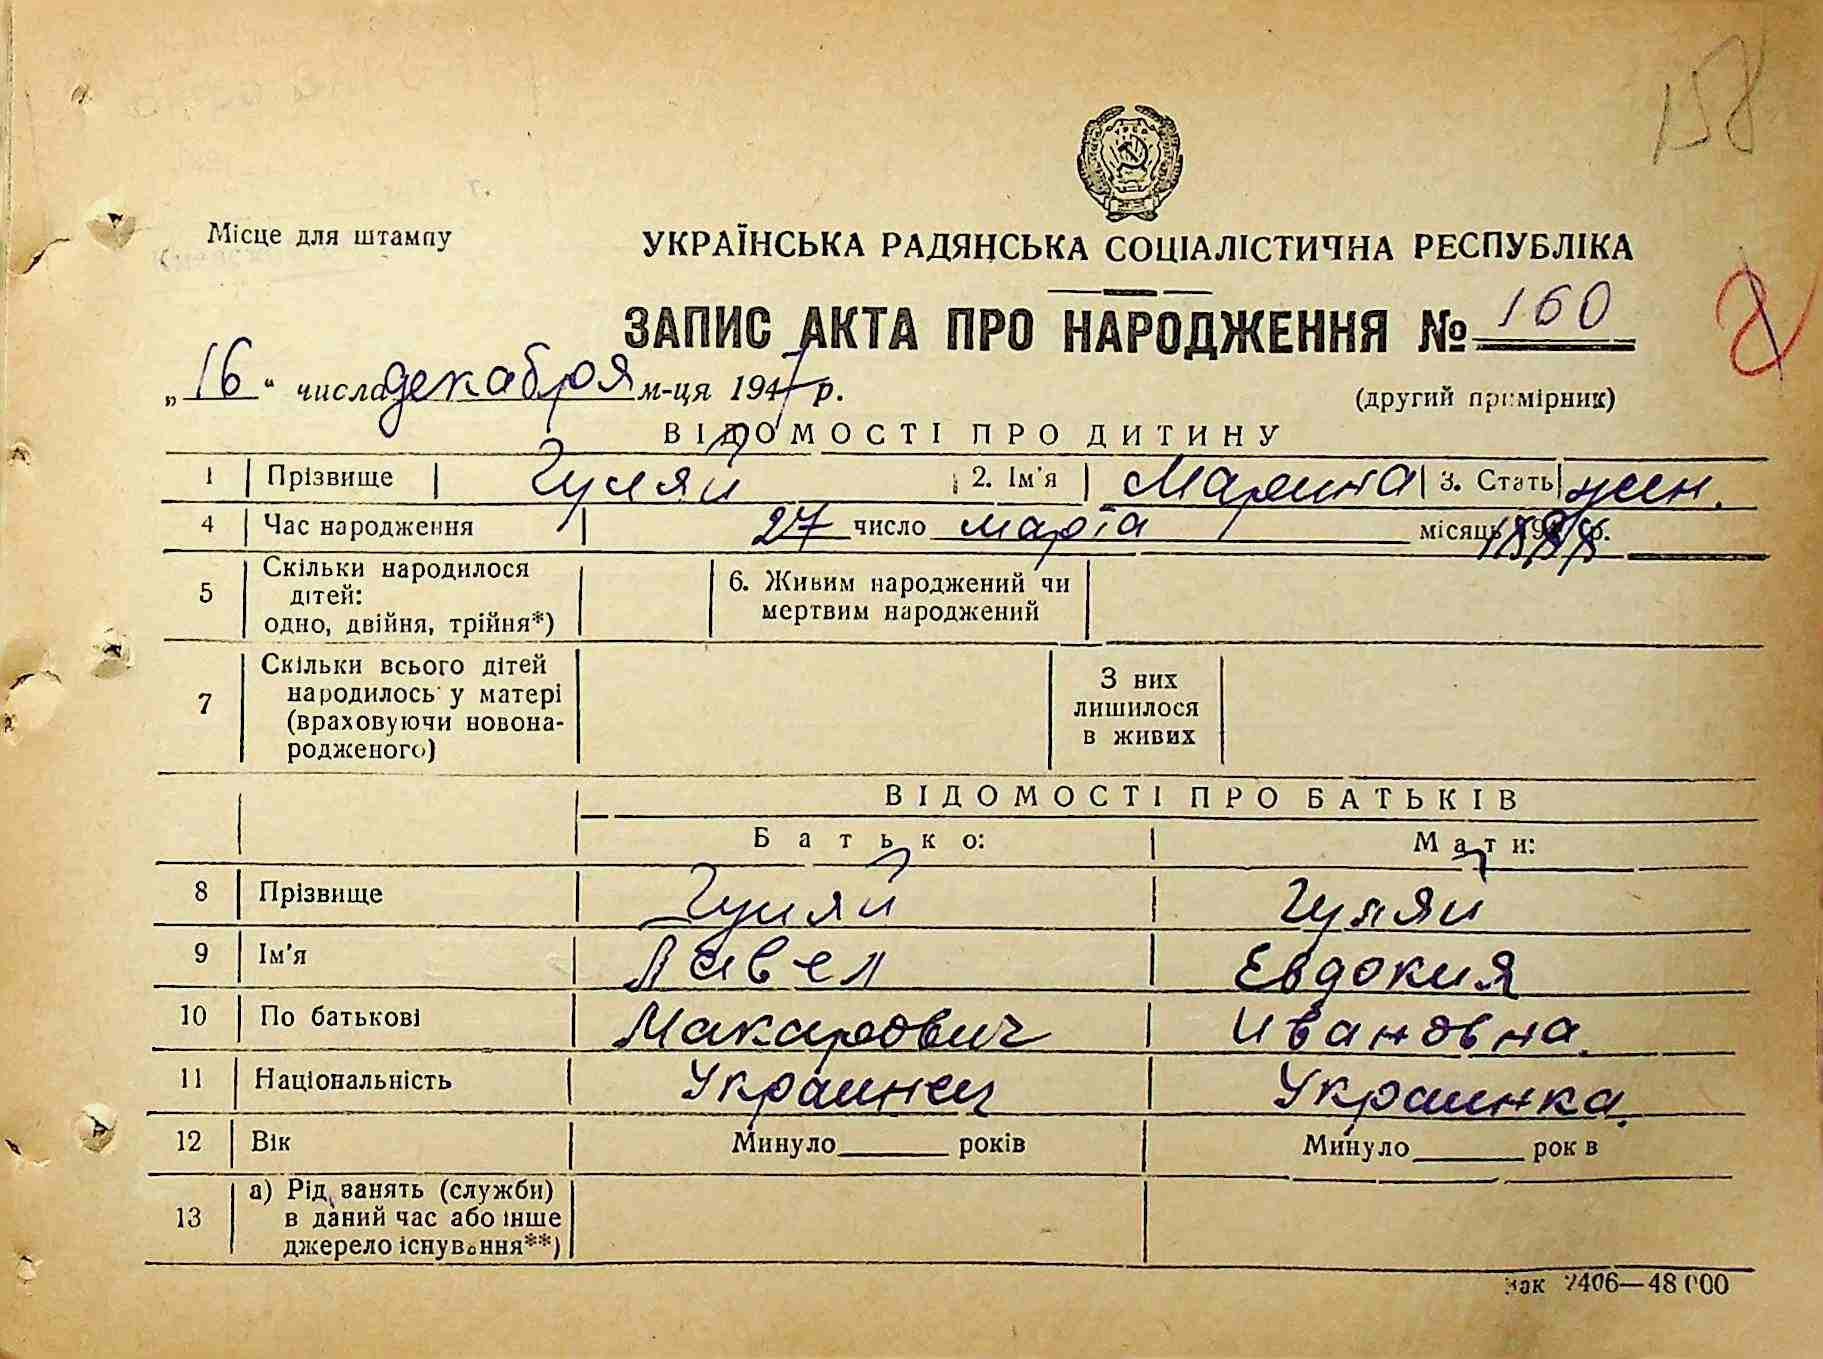 158
Місце для штампу
УКРАЇНСЬКА РАДЯНСЬКА СОЦІАЛІСТИЧНА РЕСПУБЛІКА
ЗАПИС АКТА ПРО НАРОДЖЕННЯ № 160
„16“ числа декабря м-ця 1947 р.
(другий примірник)
ВІДОМОСТІ ПРО ДИТИНУ
1 Прізвище Гуляй 2. Ім'я Марина 3. Стать жен.
4 Час народження 27 число марта місяць р.
5 Скільки народилося дітей: одно, двійня, трійня*) 6. Живим народжений чи мертвим народжений
7 Скільки всього дітей народилось у матері (враховуючи новона-родженого) З них лишилося в живих
ВІДОМОСТІ ПРО БАТЬКІВ
Батько: Мати:
8 Прізвище Гуляй Гуляй
9 Ім'я Павел Евдокия
10 По батькові Макарович Ивановна
11 Національність Украинец Украинка.
12 Вік Минуло років Минуло рок в
13 а) Рід занять (служби) в даний час або інше джерело існування**)
Зак 2406—48 000